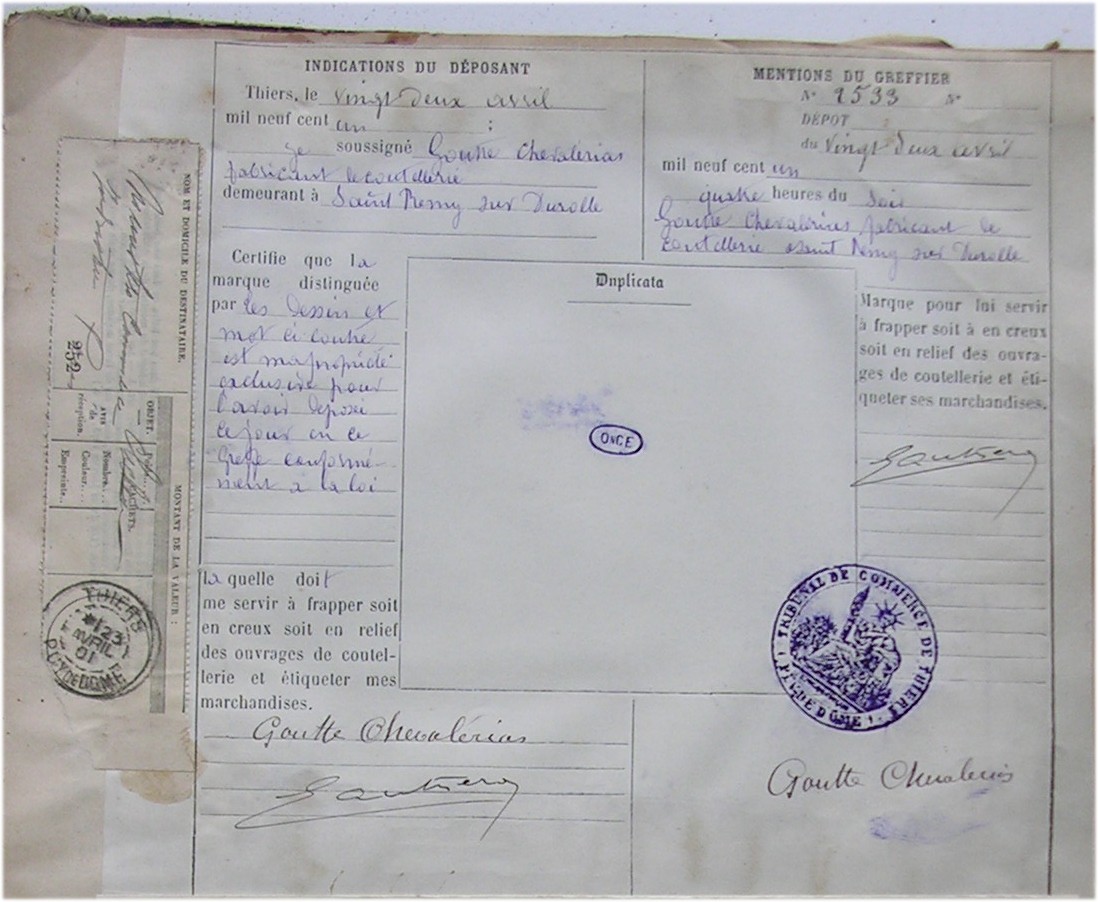 INDICATIONS DU DÉPOSANT
Thiers, le vingt deux avril
mil neuf cent un :
je soussigné Goutte Chevalerias
fabricant de coutellerie
demeurant à Saint Remy sur Durolle
Certifie que la
marque distinguée
par les dessin et
mot ci contre
est ma propriété
exclusive pour
l'avoir déposé
ce jour au ce
Greffe conformé-
ment à la loi
la quelle doit
me servir à frapper soit
en creux soit en relief
des ouvrages de coutel-
lerie et étiqueter mes
marchandises.
Goutte Chevalérias
Duplicata
ONCE
MENTIONS DU GREFFIER
N° 2533 N°
DÉPOT
du vingt deux avril
mil neuf cent un
quatre heures du soir
Goutte Chevalerias fabricant de
coutellerie à Saint Remy sur Durolle
Marque pour lui servir
à frapper soit à en creux
soit en relief des ouvra-
ges de coutellerie et éti-
queter ses marchandises.
TRIBUNAL DE COMMERCE DE THIERS
PUY DE DOME
Goutte Chevalerias
NOM ET DOMICILE DU DESTINATAIRE.
252
OBJET.
AVIS
de
réception.
CACHETS.
Nombre.
Couleur....
Empreinte..
MONTANT DE LA VALEUR :
THIERS
23
AVRIL
01
PUY DE DOME